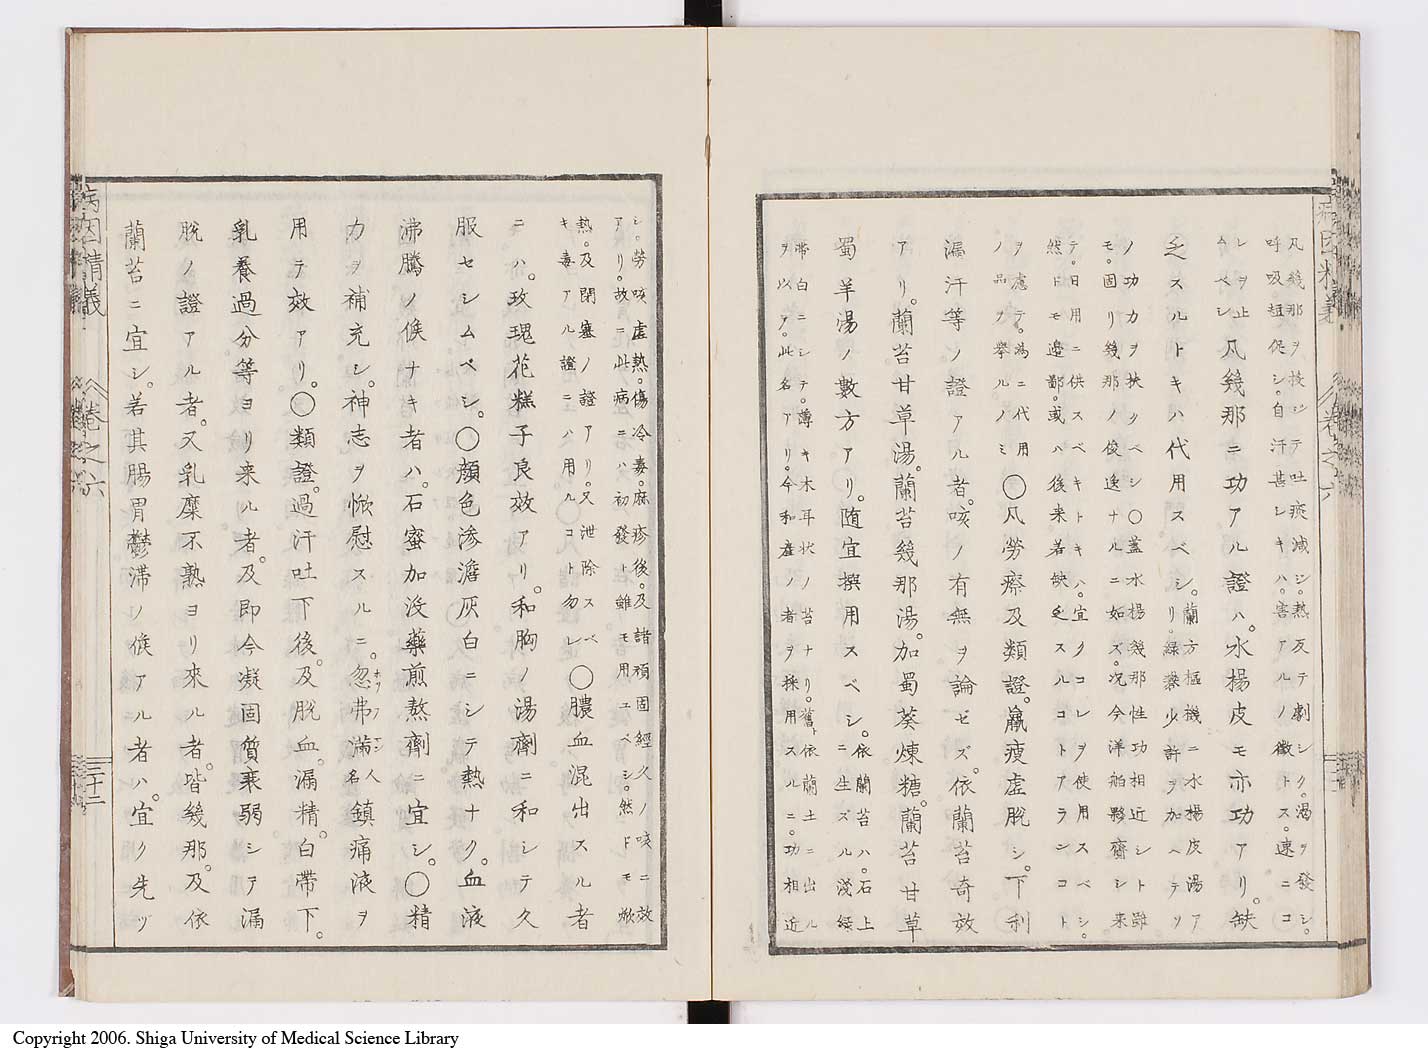 凡幾那ヲ投シテ吐痰減シ。熱反テ劇シク。渇ヲ發シ。
呼吸短促シ。自汗甚シキハ。害アルノ徴トス。速ニコ
レヲ止
ムベシ
凡幾那ニ功アル證ハ。水楊皮モ亦功アリ。缺
乏スルトキハ代用スベシ。
蘭方樞機ニ水楊皮湯ア
リ。緑礬少許ヲ加ヘテソ
ノ功力ヲ挾クベシ〇蓋水楊幾那性功相近シト雖
モ。固リ幾那ノ俊逸ナルニ如ズ。况今洋舶夥齎シ来
テ。日用ニ供スベキトキハ。宜クコレヲ使用スベシ。
然ドモ邊鄙。或ハ後来若缺乏スルコトアランコト
ヲ慮テ。為ニ代用
ノ品ヲ擧ルノミ
〇凡勞瘵及類證。羸瘦虚脱シ。下利
漏汗等ノ證アル者。咳ノ有無ヲ論ゼズ。依蘭苔奇效
アリ。蘭苔甘草湯。蘭苔幾那湯。加蜀葵煉糖。蘭苔甘草
蜀羊湯ノ數方アリ。随宜撰用スベシ。
依蘭苔ハ。石上
ニ生ズル淺緑
帯白ニシテ。薄キ木耳状ノ苔ナリ。舊依蘭土ニ出ル
ヲ以ア。此名アリ。今和産ノ者ヲ採用スルニ。功相近
シ。勞咳虚熱。傷冷毒。麻疹後。及諸頑固經久ノ咳ニ效
アリ。故ニ此病ニハ初發ト雖モ用ユベシ。然ドモ焮
熱。及閉塞ノ證アリ。又泄除スベ
キ毒アル證ニハ用ルコト勿レ
〇膿血混出スル者
ニハ。玫瑰花糕子良效アリ。和胸ノ湯劑ニ和シテ久
服セシムベシ。〇顔色滲澹灰白ニシテ熱ナク。血液
沸騰ノ候ナキ者ハ。石蜜加没藥煎熬劑ニ宜シ。〇精
力ヲ補充シ。神志ヲ慰慰スルニ。忽弗満人名鎮痛液ヲ
用テ效アリ。〇類證。過汗吐下後。及脱血。漏精。白帶下。
乳養過分等ヨリ来ル者。及即今凝固質衰弱シア漏
脱ノ證アル者。又乳糜不熟ヨリ來ル者。皆幾那。及依
蘭苔ニ宜シ。若其腸胃鬱滞ノ候アル者ハ。宜ク先ヅ
病因精義
卷之六
三十二
Copyright 2006. Shiga University of Medical Science Library